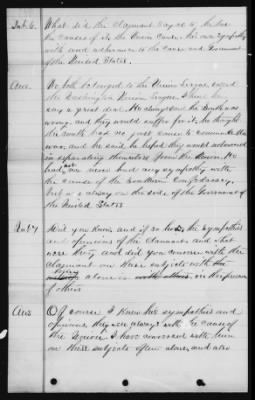 Int. 6. What did the Claimant say as to
the causes of the Union Cause, his own sympathy
with and adherance to the cause and Government
of the United States.
Ans. We both belonged to the Union League, called
the Washington Union League. I heard him
say a great deal. He always said the South was
wrong, and they would suffer for it, he thought
the South had no just cause to commence this
war, and he said he hoped they would not succeed
in separating themselves from the Union. He
had not nor never had any sympathy with
the cause of the Southern Confederacy,
but was always on the side of the Government of
the United States
Int 7 Did you know and if so how, the sympathies
and opinions of the Claimant and what
were they, and did you converse with the
Claimant on these subjects with
alone or with others, in the presence
of others
Ans Of course I knew his sympathies and
opinions, they were always with the cause of
the Union. I have conversed with him
on these subjects often alone, and also